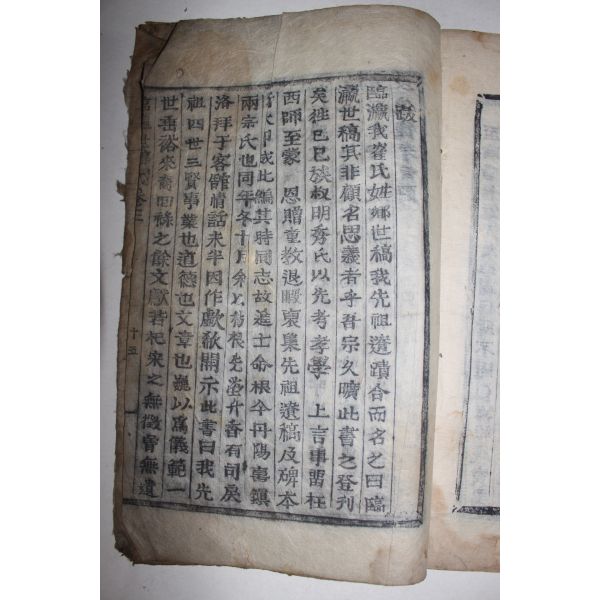 跋
臨瀛我崔氏姓鄉世稿我先祖遺蹟合而名之曰臨
瀛世稿其非顧名思義者乎吾宗久曠此書之登刊
矣往已巳族叔明秀氏以先考孝學 上言事留在
西師至蒙 恩贈童教退暇裒集先祖遺稿及碑本
此編其時同志故進士命根今丹陽喜鎭
兩宗氏也同年冬十月余上 根先塋升香有司戾
洛拜于客館情話未半因作歔欷開示此書曰我先
祖四世三賢事業也道德也文章也巍以爲儀範一
世垂裕來裔回祿之餘文獻若杞宋之無徵實無遺
十五
卷三